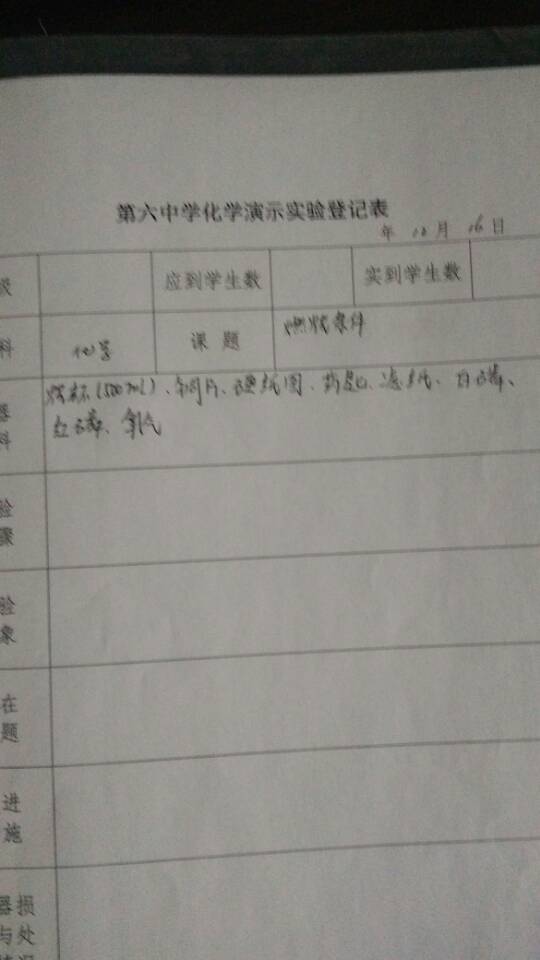 第六中学化学演示实验登记表
年 12 月 16 日
级 应到学生数 实到学生数
科 化学 课 题 燃烧条件
器 烧杯(500ml)、铜片、硬纸圈、药匙、滤纸、白磷、
料 红磷、氧气
验
骤
验
象
在
题
进
施
器损
与处